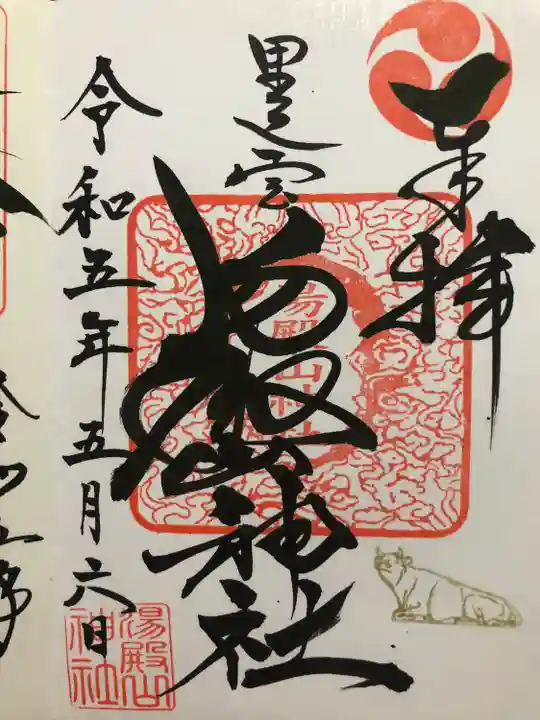 奉拝
里之宮
湯殿山神社
湯殿山神社
令和五年五月六日
湯殿山
神社